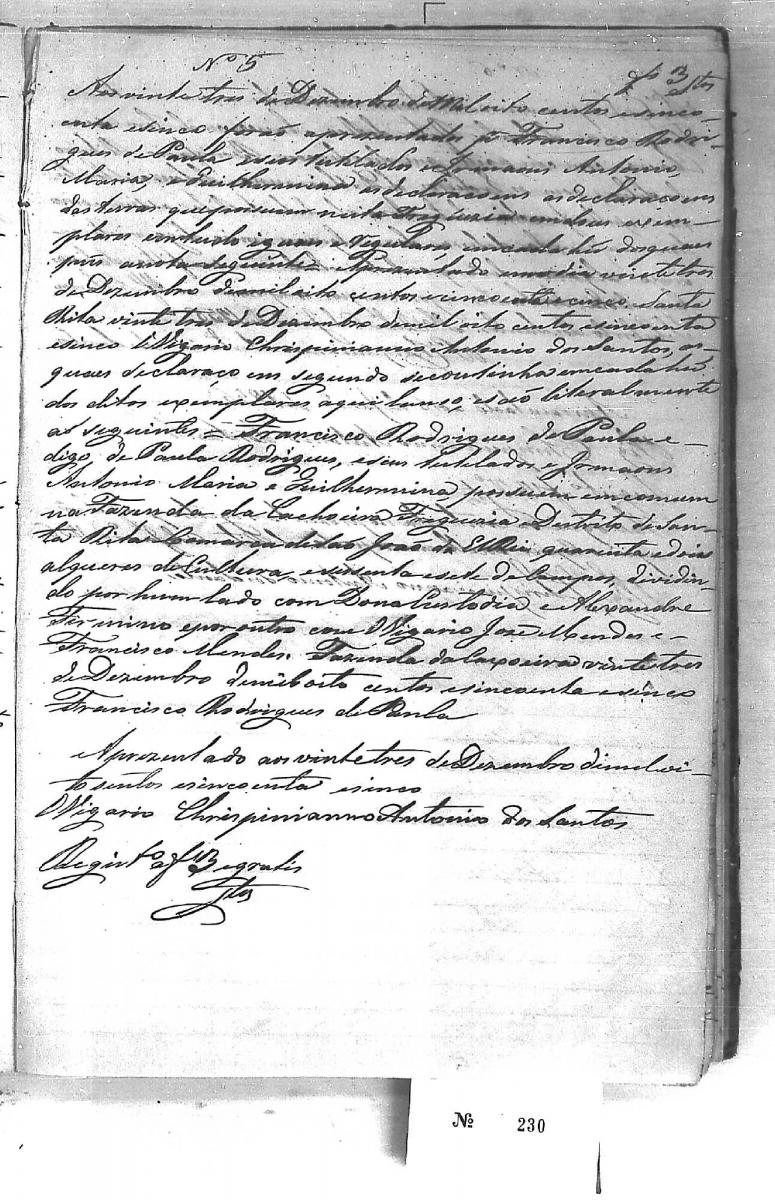 Nº 5
fs 3 Stos
Aos vinte tres de Dezembro de Mil oito centos esinco-
enta esinco forão aprezentados pr Francisco Rodri-
gues de Paula eseos tuthlados e Jrmaons Antonio,
Maria, e Guilhermina as declaracoens as declaracoens
das terras que possuem nesta Freguezia em dous exem-
plares emtudo iguaes e Regulares, em cada hú dos quaes
puis anota seguinte Aprezentado em o dia vinte tres
de Dezembro de mil oito centos e cincoenta e cinco. Santa
Rita vinte tres de Dezembro de mil oito centos esincoenta
esinco O Vigario Chrispinianno Antonio dos Santos, as
quaes declaraço em segundo se continha em cada hú
dos ditos exemplares aqui lanso, e são literalmente
as seguintes = Francisco Rodrigues de Paula e-
digo, de Paula Rodrigues, e seus tuthlados e Jrmaons
Antonio Maria e Guilhermina, possuem em comum
na Fazenda da Cachoeira Freguezia e Distrito de San-
ta Rita Comarca de São João de ElRei quarenta e dois
alqueres de Cultura, e sessenta e sete de Campos, dividin-
do por hum lado com Dona Custodia e Alexandre
Firmino e por outro com O Vigario José Mendes e-
Francisco Mendes. Fazenda da Caxoeira vinte tres
de Dezembro de mil oito centos esincoenta e sinco
Francisco Rodrigues de Paula
Aprezentado aos vinte tres de Dezembro de mil oi-
to sentos esincoenta esinco
O Vigario Chrispinianno Antonio dos Santos
Registo a fs 3 e gratis
Stos
№ 230